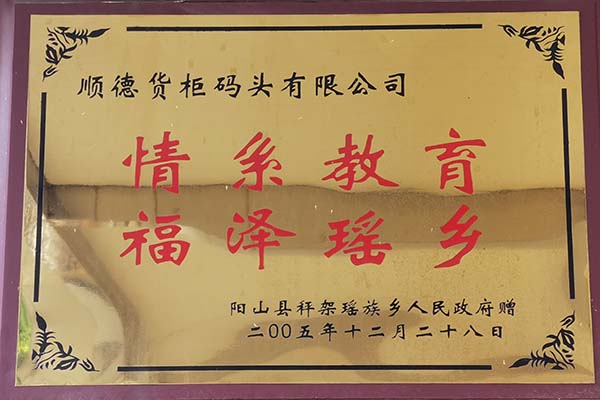 顺德货柜码头有限公司
情系教育
福泽瑶乡
阳山县秤架瑶族乡人民政府赠
二00五年十二月二十八日